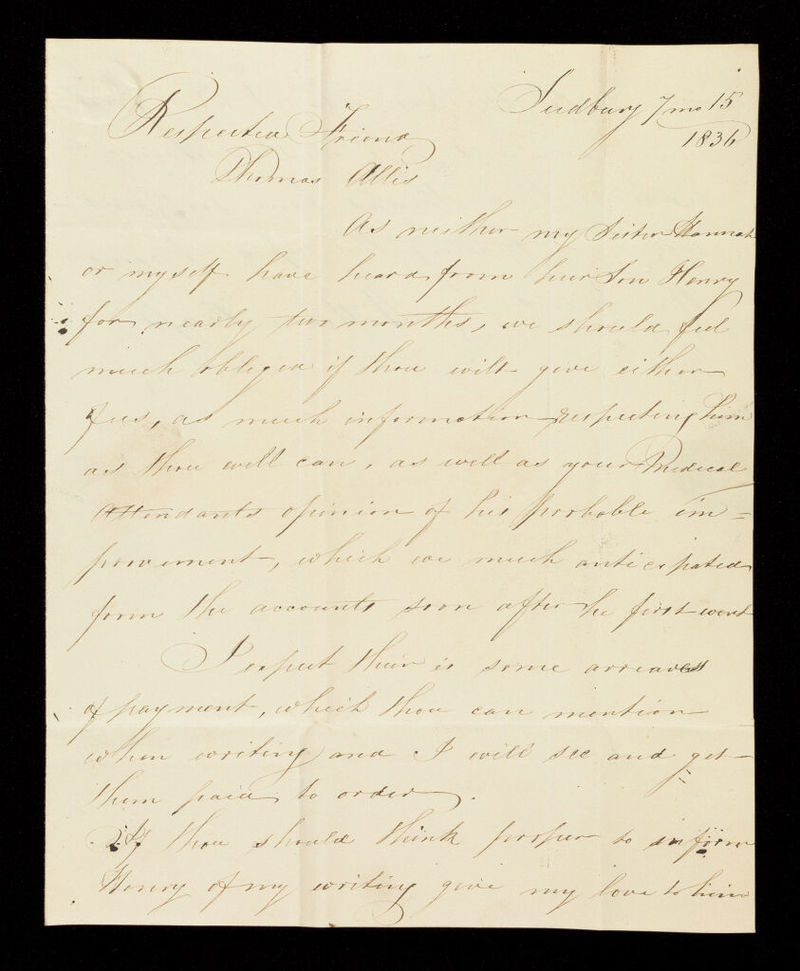 Sudbury 7mo 15
1836
Respected Friend
Thomas Allis
As neither my Sister Hannah
or myself have heard from her Son Henry
for nearly two months, we should feel
much obliged if thou will give either
of us, as much information respecting him
as thou well can, as well as your Medical
Attendants opinion of his probable im=
provement, which we much anticipated
form the accounts soon after he first went
I expect their is some arrears
of payment, which thou can mention
when writing and I will see and get
them paid to order.
If thou should think proper to inform
Henry of my writing give my love to him